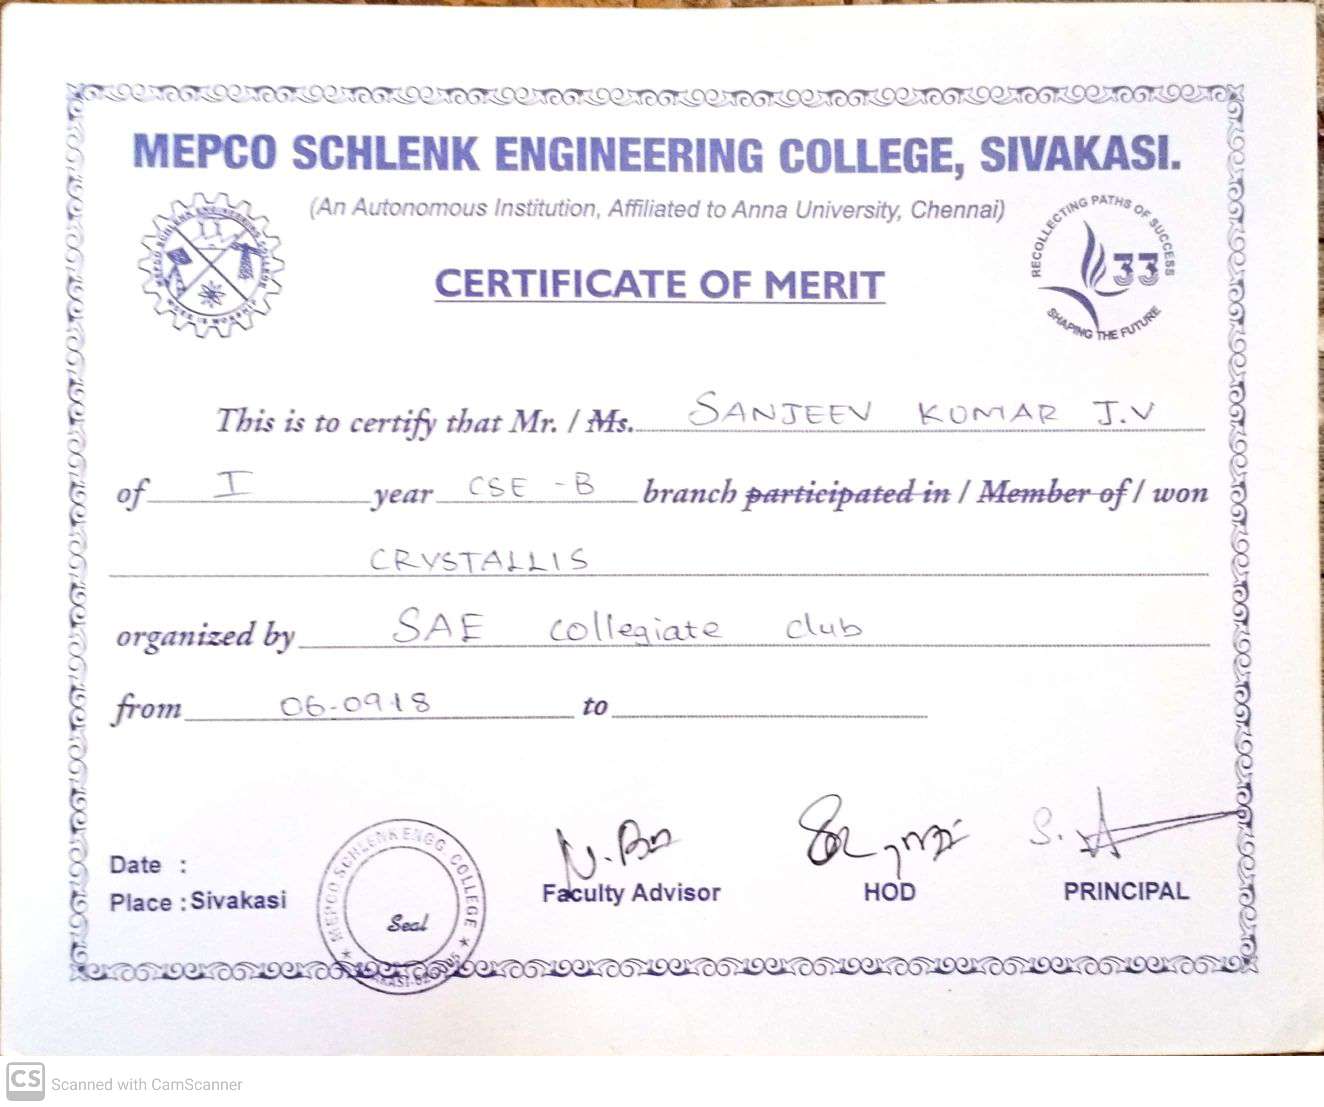 MEPCO SCHLENK ENGINEERING COLLEGE, SIVAKASI.
(An Autonomous Institution, Affiliated to Anna University, Chennai)
MEPCO SCHLENK ENGINEERING COLLEGE
WORK IS WORSHIP
RECOLLECTING PATHS OF SUCCESS
33
SHAPING THE FUTURE
CERTIFICATE OF MERIT
This is to certify that Mr. / Ms. SANJEEV KUMAR J.V
of I year CSE - B branch participated in / Member of / won
CRYSTALLIS
organized by SAE collegiate club
from 06-09-18 to
Date :
Place : Sivakasi
MEPCO SCHLENK ENGG. COLLEGE
Seal
Faculty Advisor
HOD
PRINCIPAL
CS Scanned with CamScanner